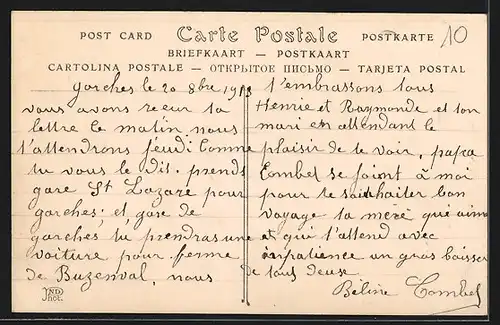 10
POST CARD Carte Postale POSTKARTE
BRIEFKAART — POSTKAART
CARTOLINA POSTALE — ОТКРЫТОЕ ПИСЬМО — TARJETA POSTAL
garches le 20 8bre 1913
vous avons reçur ta
lettre le matin, nous
t'attendrons jeudi Comme
tu vous le dit. prends
gare St Lazare pour
garches; et gare de
garches tu prendras une
voiture pour ferme
de Buzenval, nous
t'embrassons tous
Henrie et Raymonde et ton
mari en attendant le
plaisir de te voir, papa
Combel se joint à moi
pour te saithaiter bon
voyage ta mère qui aime
et qui t'attend avec
impatience un gros baiser
de tous deuse.
Béline Combel
ND
Phot.